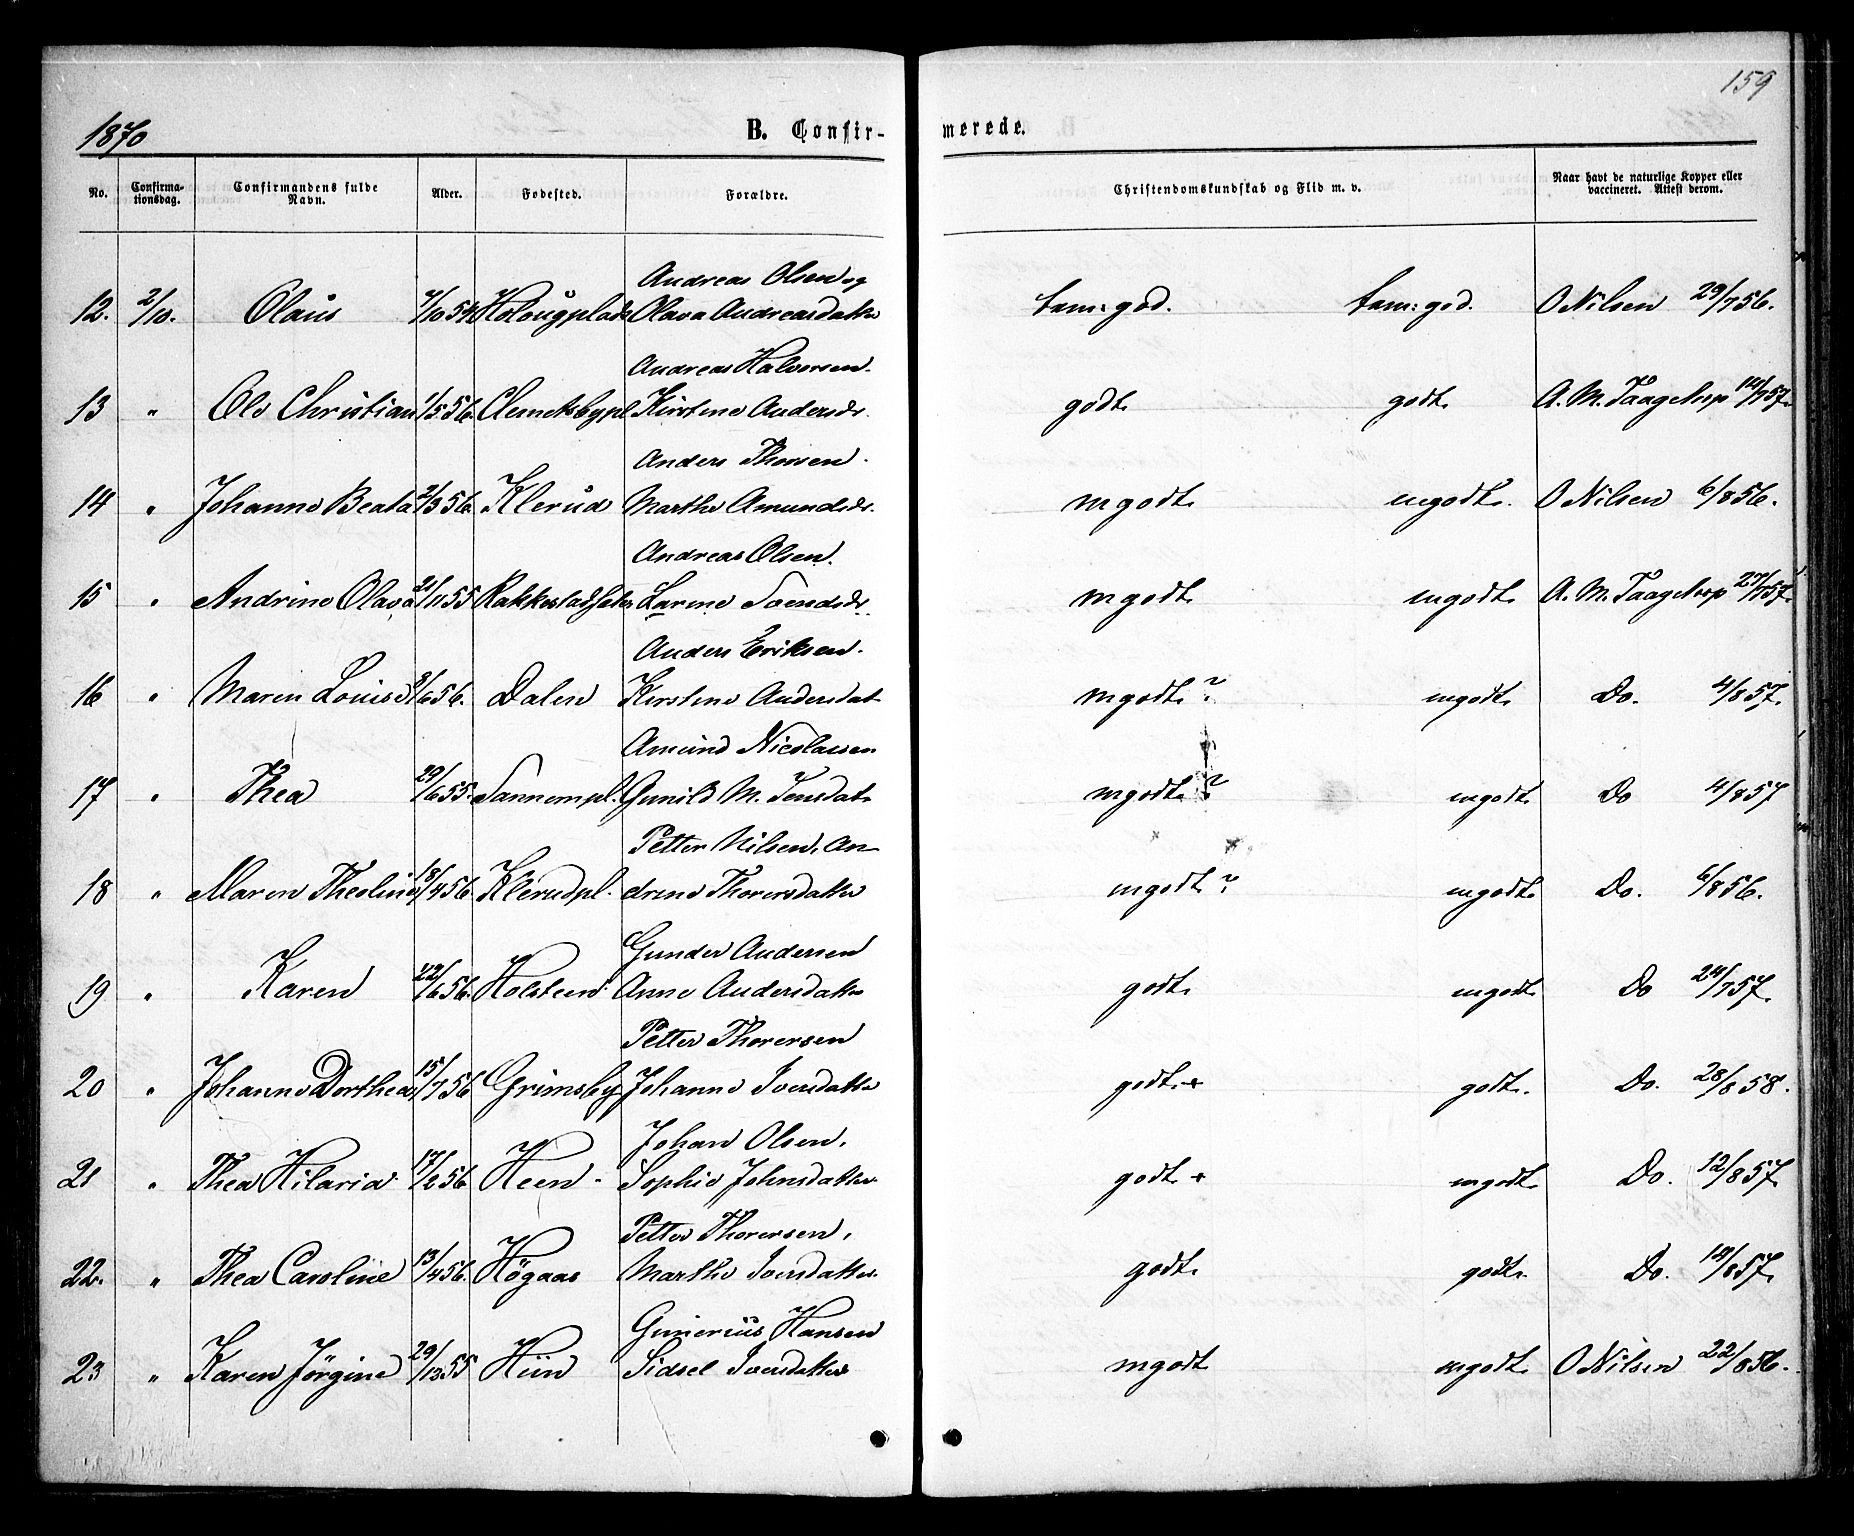 159
1870
B. Confir-
merede.
No.
Confirma-
tionsdag.
Confirmandens fulde
Navn.
Alder.
Fødested.
Forældre.
Christendomskundskab og Flid m. v.
Naar havt de naturlige Kopper eller
vaccineret. Attest derom.
Andreas Olsen og
12. 2/10. Olaus 4/10 54 Olava Andreasdatter tem: god. tem: god. O Nilsen 29/7 56.
Andreas Halvorsen.
13 " Ole Christian 1/5 56. Clemetsbypl Kirstine Andersdr. godt godt A. M. Taagelrop 14/7 57.
Anders Thorsen.
14 " Johanne Beata 2/3 56. Klerud Marthe Amundsdr. mgodt mgodt. O Nilsen 6/8 56.
Andreas Olsen.
15 " Andrine Olava 21/11 55 Rakkestadsæter Larine Svendsdr. mgodt mgodt A. M. Taagelrop 27/7 57.
Anders Eriksen.
16 " Maren Louise 3/6 56. Dalen Kirstine Andersdat mgodt? mgodt Do. 4/8 57.
Amund Nicolaisen
17 " Thea 29/6 55. Sannempl. Gunild M. Jensdat. mgodt? mgodt Do 4/8 57
Petter Nilsen, An-
18 " Maren Theoline 18/4 56. Klerudpl. drine Thorersdatter mgodt? mgodt Do. 6/8 56.
Gunder Andersen
19 " Karen 22/6 56. Holsteen Anne Andersdatter godt mgodt Do 24/7 57.
Petter Thorersen
20 " Johanne Dorthea 15/7 56 Grimsby Johanne Iversdatter godt + godt. Do. 28/8 58.
Johan Olsen,
21 " Thea Hilaria 17/2 56 Heen - Sophie Johnsdatter godt + mgodt Do. 12/8 57.
Petter Thorersen,
22. " Thea Caroline 13/4 56. Högaas Marthe Iversdatter. godt godt. Do. 14/8 57.
Gunerius Hansen
23 " Karen Jörgine 29/12 55 Hiin Sidsel Iversdatter mgodt mgodt O Nilsen 22/8 56.